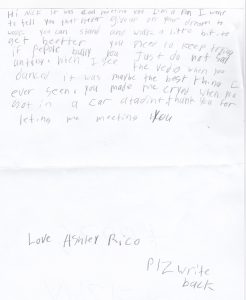 Hi Nick it was good meeting you I'm a fan I want
to tell you that never give up on your dream to
walk you can stand and walk a little bit to
get beetter you need to keep trying
if people bully you Just do not
when I see the vedo when you
danced it was maybe the best thing I
ever seen. you made me cry when you
in a car thank you for
leting me meeting you
Love Ashley Rico
PlZ write
back